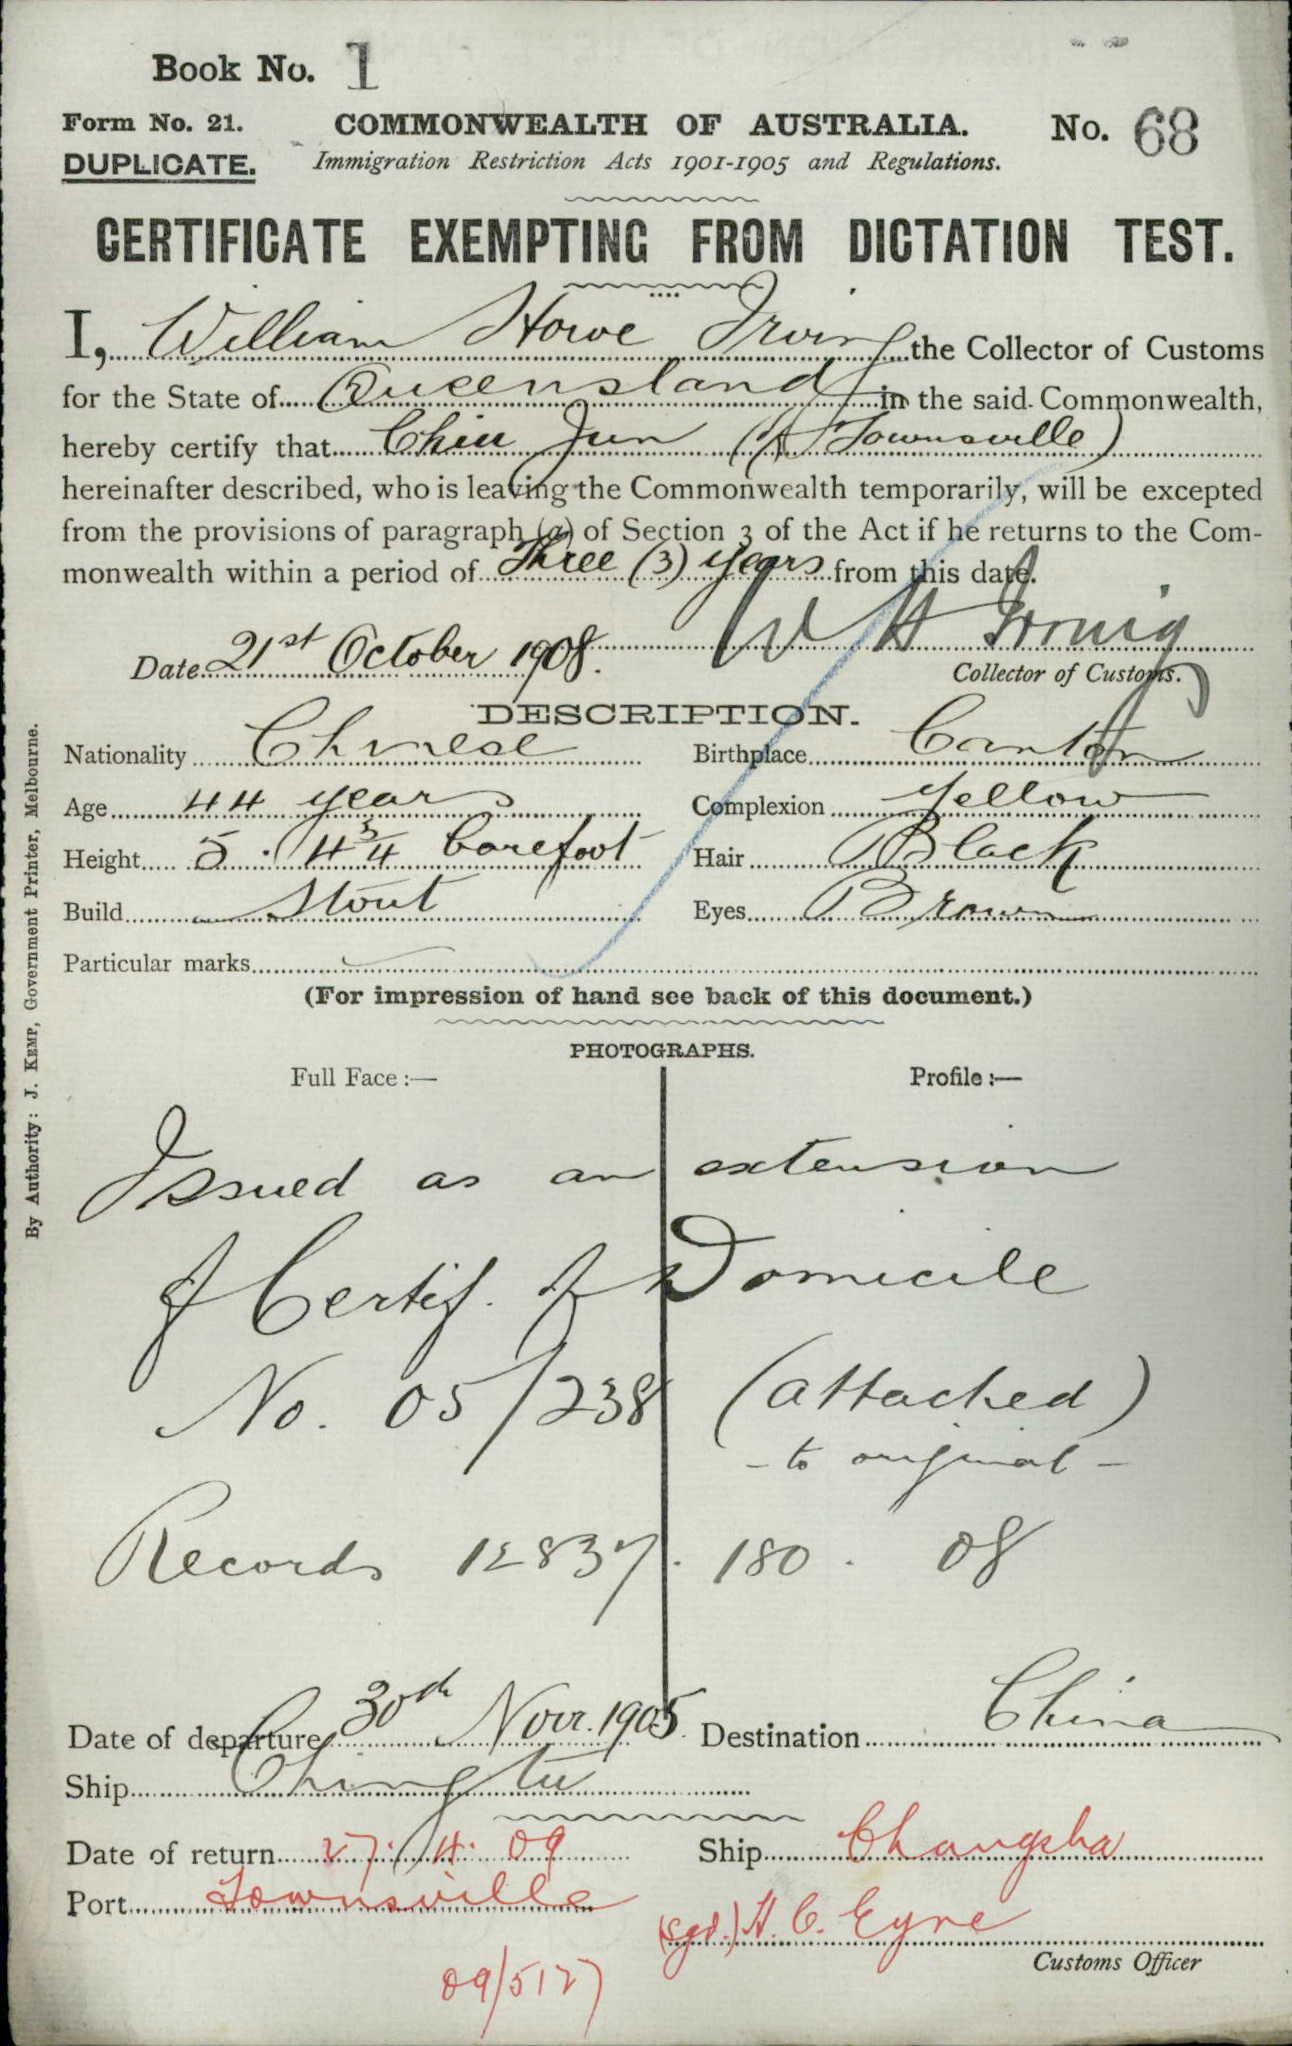 Book No. 1
Form No. 21. COMMONWEALTH OF AUSTRALIA. No. 68
DUPLICATE. Immigration Restriction Acts 1901-1905 and Regulations.
CERTIFICATE EXEMPTING FROM DICTATION TEST.
I, William Howe Irving the Collector of Customs
for the State of Queensland in the said Commonwealth,
hereby certify that Chin Jun (of Townsville)
hereinafter described, who is leaving the Commonwealth temporarily, will be excepted
from the provisions of paragraph (a) of Section 3 of the Act if he returns to the Com-
monwealth within a period of Three (3) years from this date.
W H Irving
Date 21st October 1908.
Collector of Customs.
DESCRIPTION.
Nationality Chinese Birthplace Canton
Age 44 years Complexion Yellow
Height 5 . 4 3/4 barefoot Hair Black
Build Stout Eyes Brown
Particular marks
(For impression of hand see back of this document.)
PHOTOGRAPHS.
Full Face :— Profile :—
Issued as an extension
of Certif. of Domicile
No. 05/238 (attached)
- to original -
Records 12837. 180. 08
Date of departure 30th Novr. 1905 Destination China
Ship Chingtu
Date of return 27. 4. 09 Ship Changsha
Port Townsville
(sgd.) H. C. Eyre
Customs Officer
09/5127
By Authority: J. KEMP, Government Printer, Melbourne.